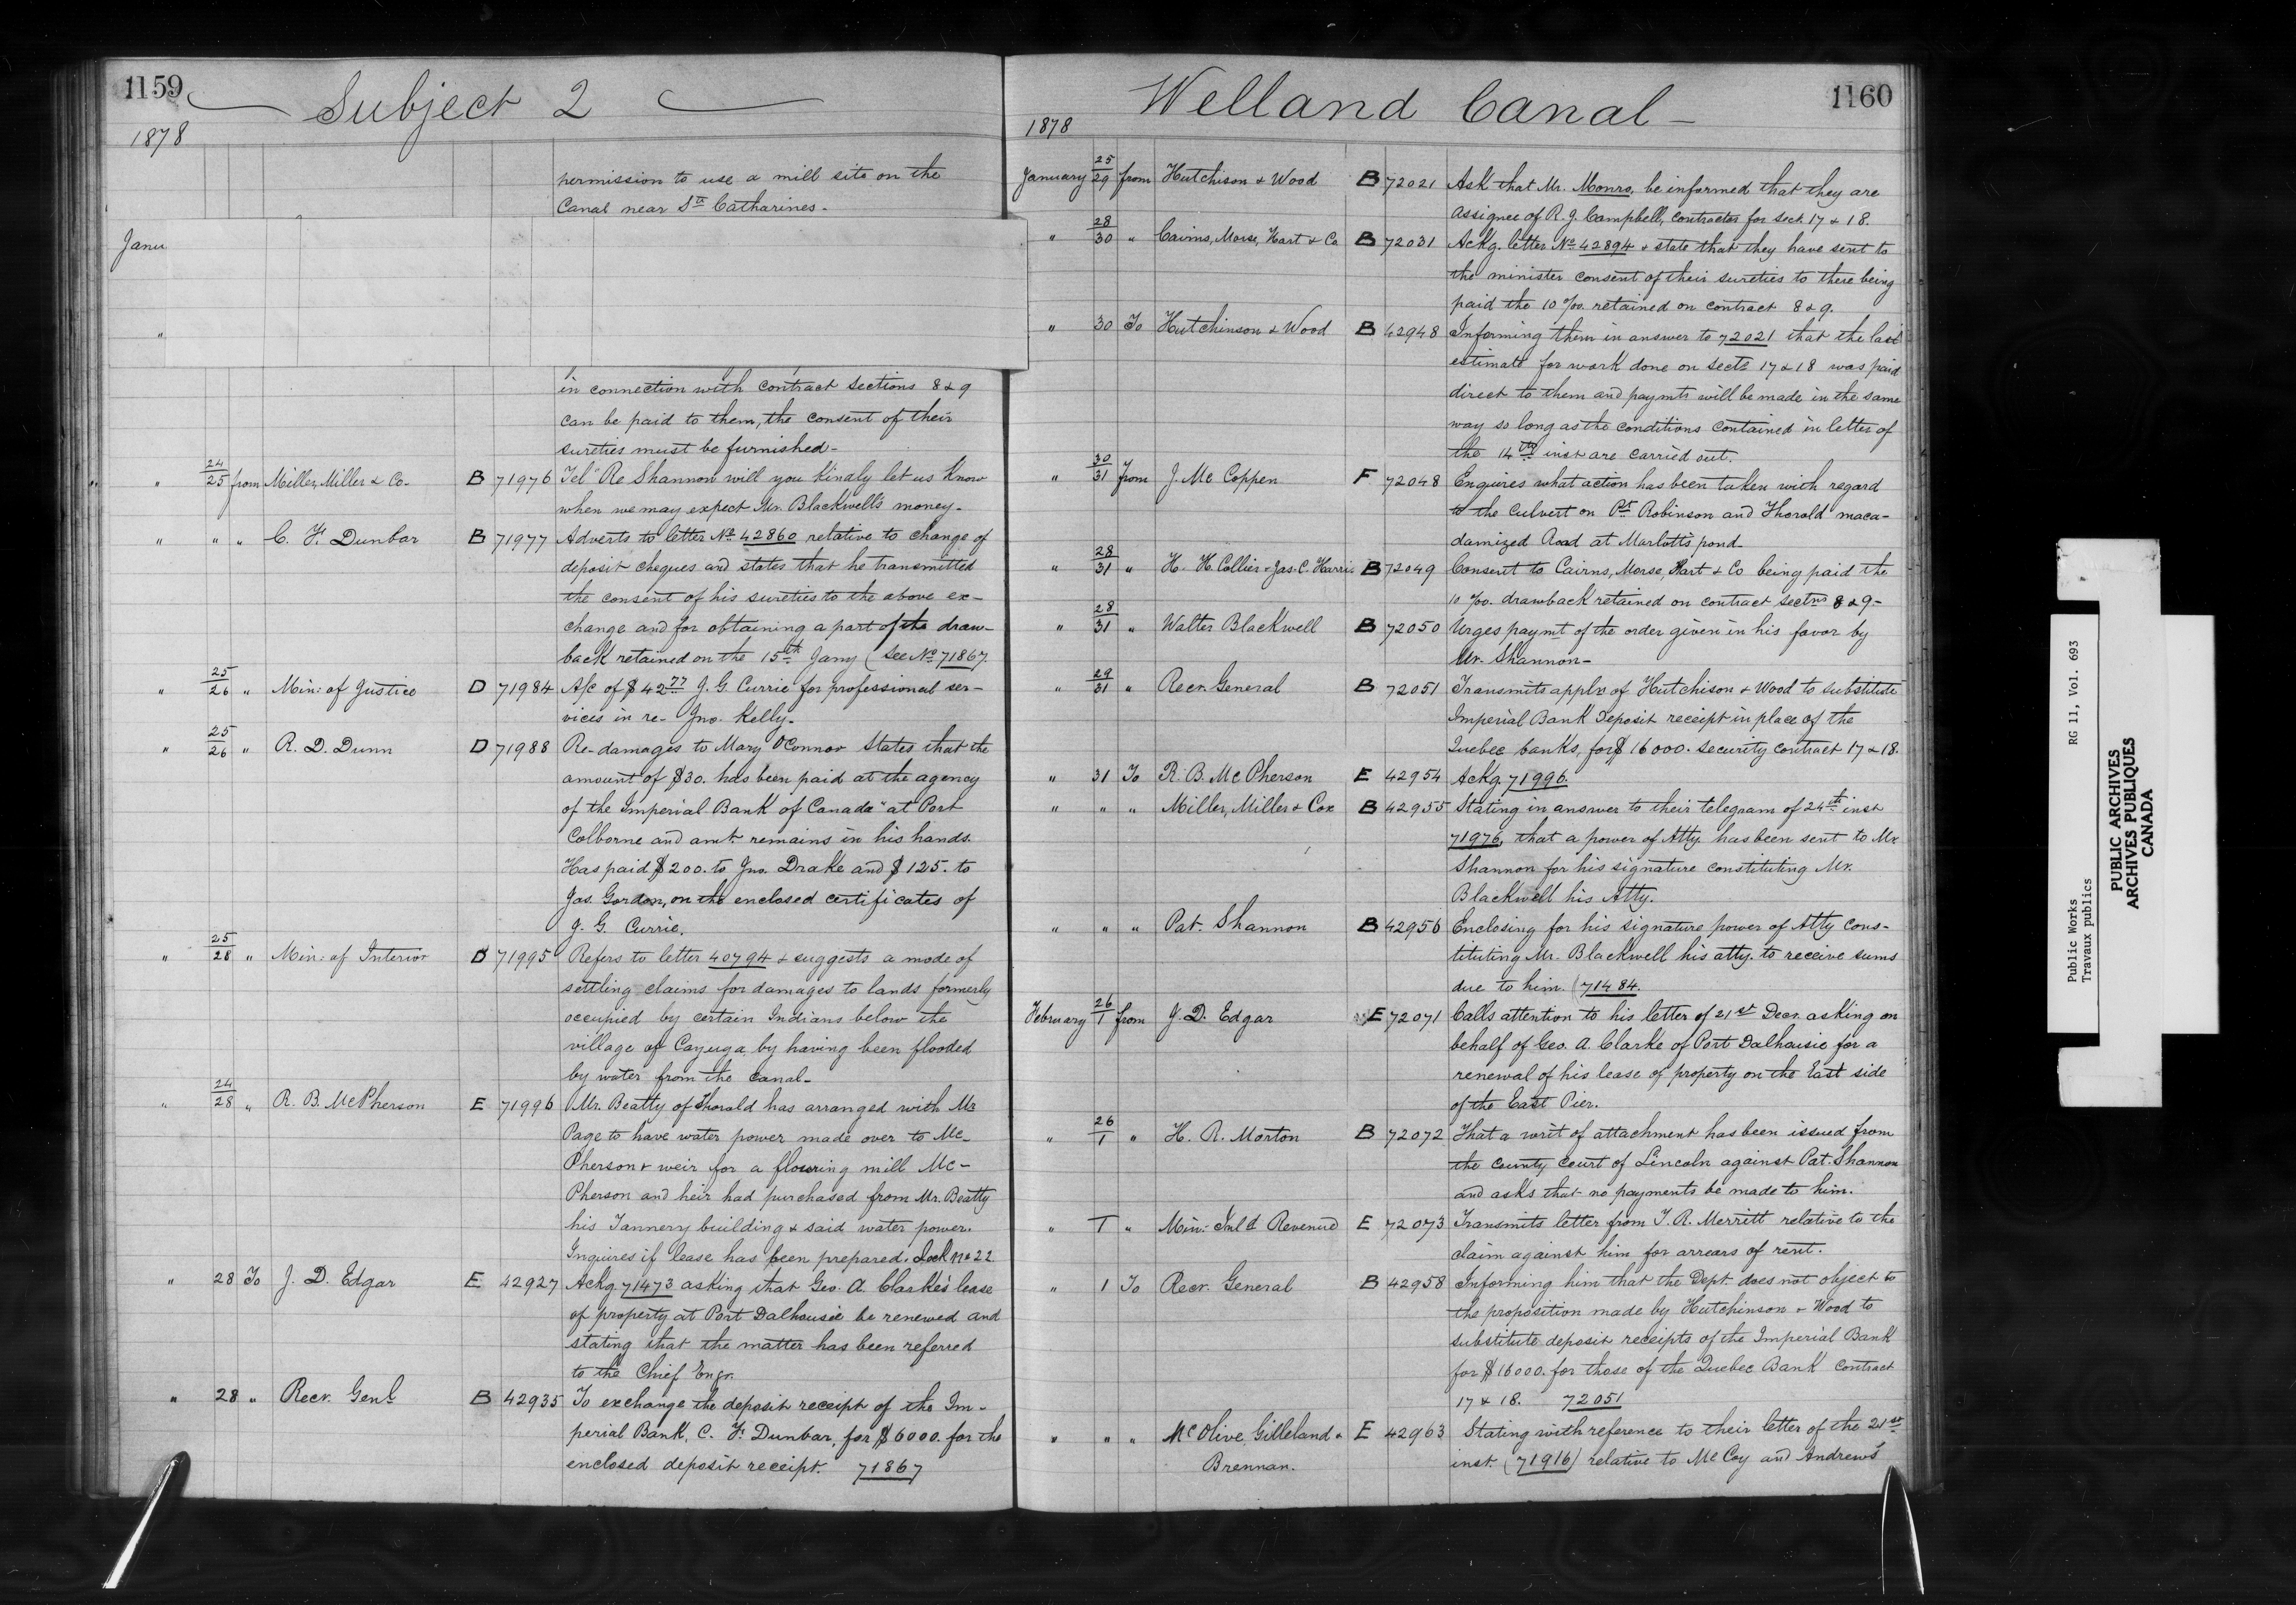 1159
Subject 2
1878
permission to use a mill site on the
Canal near St. Catharines-
Janu
"
in connection with contract sections 8 & 9
can be paid to them, the consent of their
sureties must be furnished-
" 24/25 from Miller, Miller & Co- B 71976 Tel "Re Shannon will you kindly let us know
when we may expect Mr. Blackwell's money-
" " " C. F. Dunbar B 71977 Adverts to letter No. 42860 relative to change of
deposit cheques and states that he transmitted
the consent of his sureties to the above ex-
change and for obtaining a part of the draw-
back retained on the 15th Jany (See No. 71867.
" 25/26 " Min: of Justice D 71984 A/c of $42 77 J. G. Currie for professional ser-
vices in re- Jno. Kelly-
" 25/26 " R. D. Dunn D 71988 Re-damages to Mary O'Connor States that the
amount of $30. has been paid at the agency
of the Imperial Bank of Canada" at Port
Colborne and amt. remains in his hands.
Has paid $200. to Jno. Drake and $125. to
Jas. Gordon, on the enclosed certificates of
J. G. Currie.
" 25/28 " Min: of Interior D 71995 Refers to letter 40794 & suggests a mode of
settling claims for damages to lands formerly
occupied by certain Indians below the
village of Cayuga by having been flooded
by water from the Canal-
" 24/28 " R. B. McPherson E 71996 Mr. Beatty of Thorald has arranged with Mr
Page to have water power made over to Mc-
Pherson & weir for a flouring mill Mc-
Pherson and heir had purchased from Mr. Beatty
his Tannery building & said water power.
Inquires if lease has been prepared. Lock No 22
" 28 To J. D. Edgar E 42927 Ackg 71473 asking that Geo. A. Clarke's lease
of property at Port Dalhousie be renewed and
stating that the matter has been referred
to the Chief Engr.
" 28 " Recr. Genl. B 42935 To exchange the deposit receipt of the Im-
perial Bank, C. F. Dunbar, for $6000. for the
enclosed deposit receipt. 71867
Welland Canal-
1160
1878
January 25/29 from Hutchison & Wood B 72021 Ask that Mr. Monro, be informed that they are
assignee of R. J. Campbell, contractor for sect. 17 & 18.
" 28/30 " Cairns, Morse, Hart & Co B 72031 Ackg. letter No. 42894 & state that they have sent to
the minister consent of their sureties to there being
paid the 10 %. retained on contract 8 & 9.
" 30 To Hutchinson & Wood B 42948 Informing them in answer to 72021 that the last
estimate for work done on sects 17 & 18 was paid
direct to them and paymts will be made in the same
way so long as the conditions contained in letter of
the 14th inst are carried out.
" 30/31 from J. Mc Coppen F 72048 Enquires what action has been taken with regard
to the Culvert on Pt. Robinson and Thorald maca-
damized Road at Marlatt's pond-
" 28/31 " H. H. Collier & Jas. C. Harris B 72049 Consent to Cairns, Morse, Hart & Co being paid the
10 %. drawback retained on contract sectns 8 & 9-
" 28/31 " Walter Blackwell B 72050 Urges paymt of the order given in his favor by
Mr. Shannon-
" 29/31 " Recr. General B 72051 Transmits appln of Hutchison & Wood to substitute
Imperial Bank Deposit receipt in place of the
Quebec banks, for $16000. security contract 17 & 18.
" 31 To R. B. McPherson E 42954 Ackg. 71996.
" " " Miller, Miller & Cox B 42955 Stating in answer to their telegram of 24th inst
71976, that a power of Atty. has been sent to Mr
Shannon for his signature constituting Mr.
Blackwell his Atty.
" " " Pat. Shannon B 42956 Enclosing for his signature power of Atty cons-
tituting Mr. Blackwell his atty. to receive sums
due to him. (71484.
February 26/1 from J. D. Edgar E 72071 Calls attention to his letter of 21st Decr. asking on
behalf of Geo. A. Clarke of Port Dalhousie for a
renewal of his lease of property on the East side
of the East Pier.
" 26/1 " H. R. Morton B 72072 That a writ of attachment has been issued from
the County Court of Lincoln against Pat. Shannon
and asks that no payments be made to him.
" 1 " Min: Inld Revenue E 72073 Transmits letter from T. R. Merritt relative to the
claim against him for arrears of rent.
" 1 To Recr. General B 42958 Informing him that the Dept. does not object to
the proposition made by Hutchinson & Wood to
substitute deposit receipts of the Imperial Bank
for $16000. for those of the Quebec Bank contract
17 & 18. 72051
" " " McOlive, Gilleland & E 42963 Stating with reference to their letter of the 21st
Brennan. inst. (71916) relative to McCoy and Andrews'
Public Works RG 11, Vol. 693
Travaux publics
PUBLIC ARCHIVES
ARCHIVES PUBLIQUES
CANADA